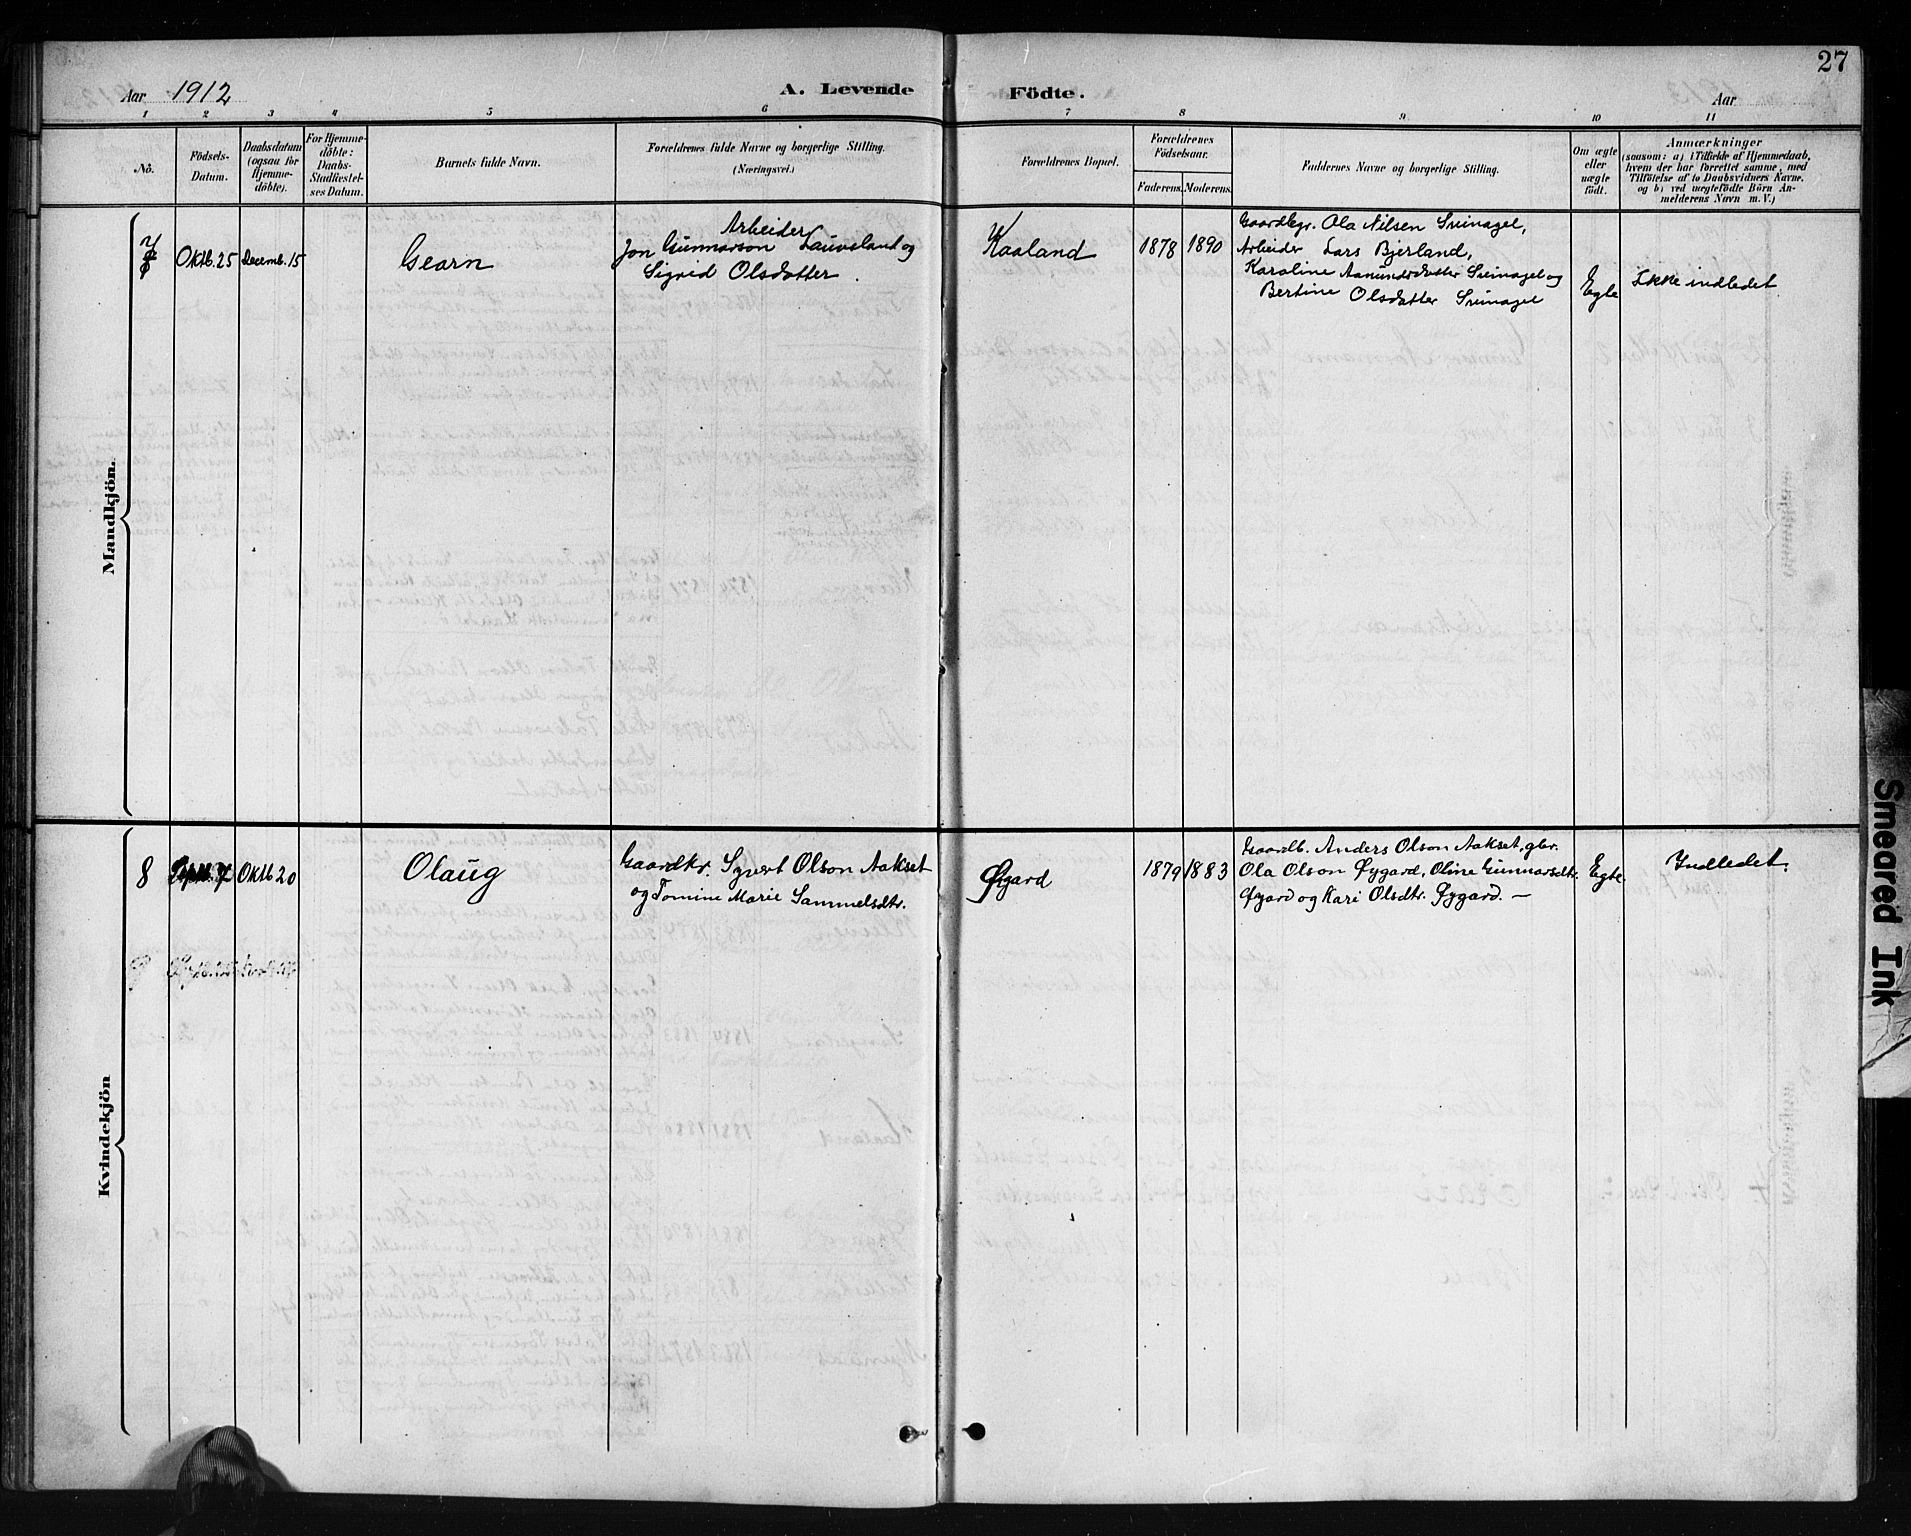 27
Aar 1912
A. Levende Födte.
Aar
1 2 3 4 5 6 7 8 9 10 11
No.
Födsels-
Datum.
Daabsdatum
(ogsaa for
Hjemme-
döbte).
For Hjemme-
döbte:
Daabs-
Stadfæstel-
ses Datum.
Barnets fulde Navn.
Forældrenes fulde Navne og borgerlige Stilling.
(Næringsvei.)
Forældrenes Bopæl.
Forældrenes
Födselsaar.
Faderens. Moderens.
Faddernes Navne og borgerlige Stilling.
Om ægte
eller
uægte
födt.
Anmærkninger
(saasom: a) i Tilfælde af Hjemmedaab,
hvem der har forrettet samme, med
Tilföielse af to Daabsvidners Navne,
og b) ved uægtefödte Börn An-
melderens Navn m. V.)
Mandkjön.
Oktb. 25
Decemb. 15
Gearn
Arbeider
Jon Gunnarson Lauvsland og
Sigrid Olsdatter.
Kaaland
1878
1890
Gaardbgr. Ola Nilsen Sveinagel,
Arbeider Lars Bjerland,
Karoline Aanundsdatter Sveinagel og
Bertine Olsdatter Sveinagel
Egte
Ikke indledet
Kvindekjön
8
Oktb 20
Olaug
Gaardbr. Syvert Olson Aakset
og Tomine Marie Sammelsdtr.
Øygard
1879
1883
Gaardb. Anders Olson Aakset, gbr.
Ola Olson Øygard, Oline Gunnarsdtr.
Øygard og Kari Olsdtr. Øygard. —
Egte
Indledet.
Smeared Ink